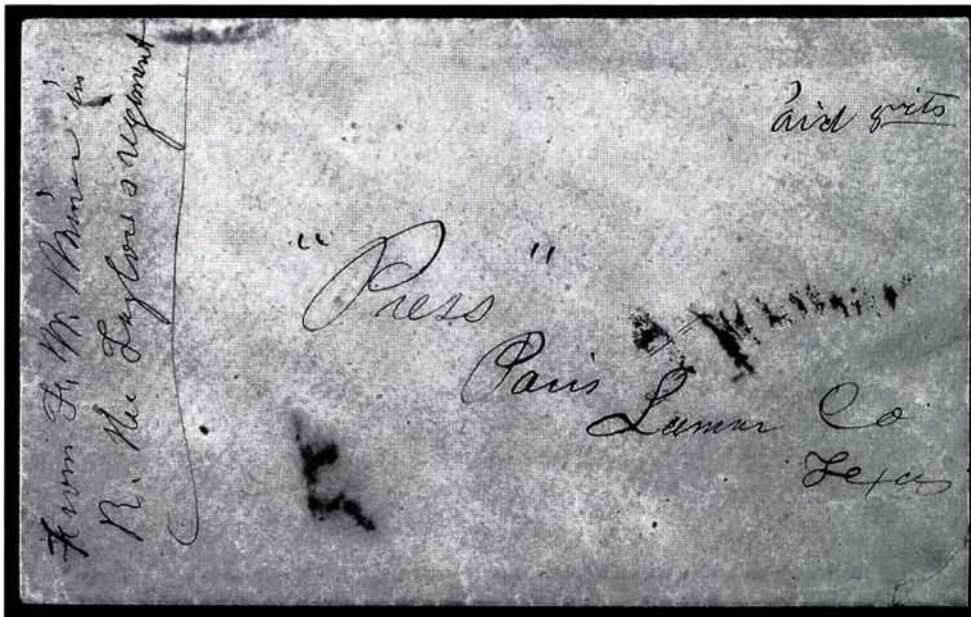 From F. W. Miner in
R. M. Taylors regiment
aid 5 cts
"Press"
Paris
Lamar Co
Texas